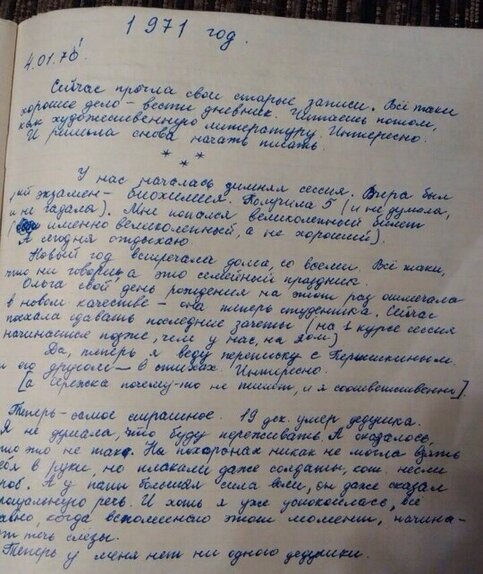 1971 год.
4.01.71
Сейчас прочла свои старые записи. Всё таки
хорошее дело – вести дневник. Читаешь потом,
как художественную литературу. Интересно.
И решила снова начать писать.
* * *
У нас началась зимняя сессия. Вчера был
ый экзамен – биохимия. Получила 5 (и не думала,
и не гадала). Мне попался великолепный билет
(именно великолепный, а не хороший).
А сегодня отдыхаю.
Новый год встречала дома, со всеми. Всё таки,
что ни говори, а это семейный праздник.
Ольга свой день рождения на этот раз отмечала
в новом качестве – она теперь студентка. Сейчас
поехала сдавать последние зачеты (на 1 курсе сессия
начинается позже, чем у нас, на 2ом)
Да, теперь я веду переписку с
и его другом – в стихах. Интересно.
[а Сережка почему-то не пишет, и я соответственно].
Теперь – самое страшное. 19 дек. умер дедушка.
Я не думала, что буду переживать. А оказалось,
что это не так. На похоронах никак не могла взять
себя в руки, но плакали даже солдаты, кот. несли
гроб. А у папы большая сила воли, он даже сказал
прощальную речь. И хоть я уже успокоилась, всё
равно, когда вспоминаю этот момент, начина-
ют течь слезы.
Теперь у меня нет ни одного дедушки.